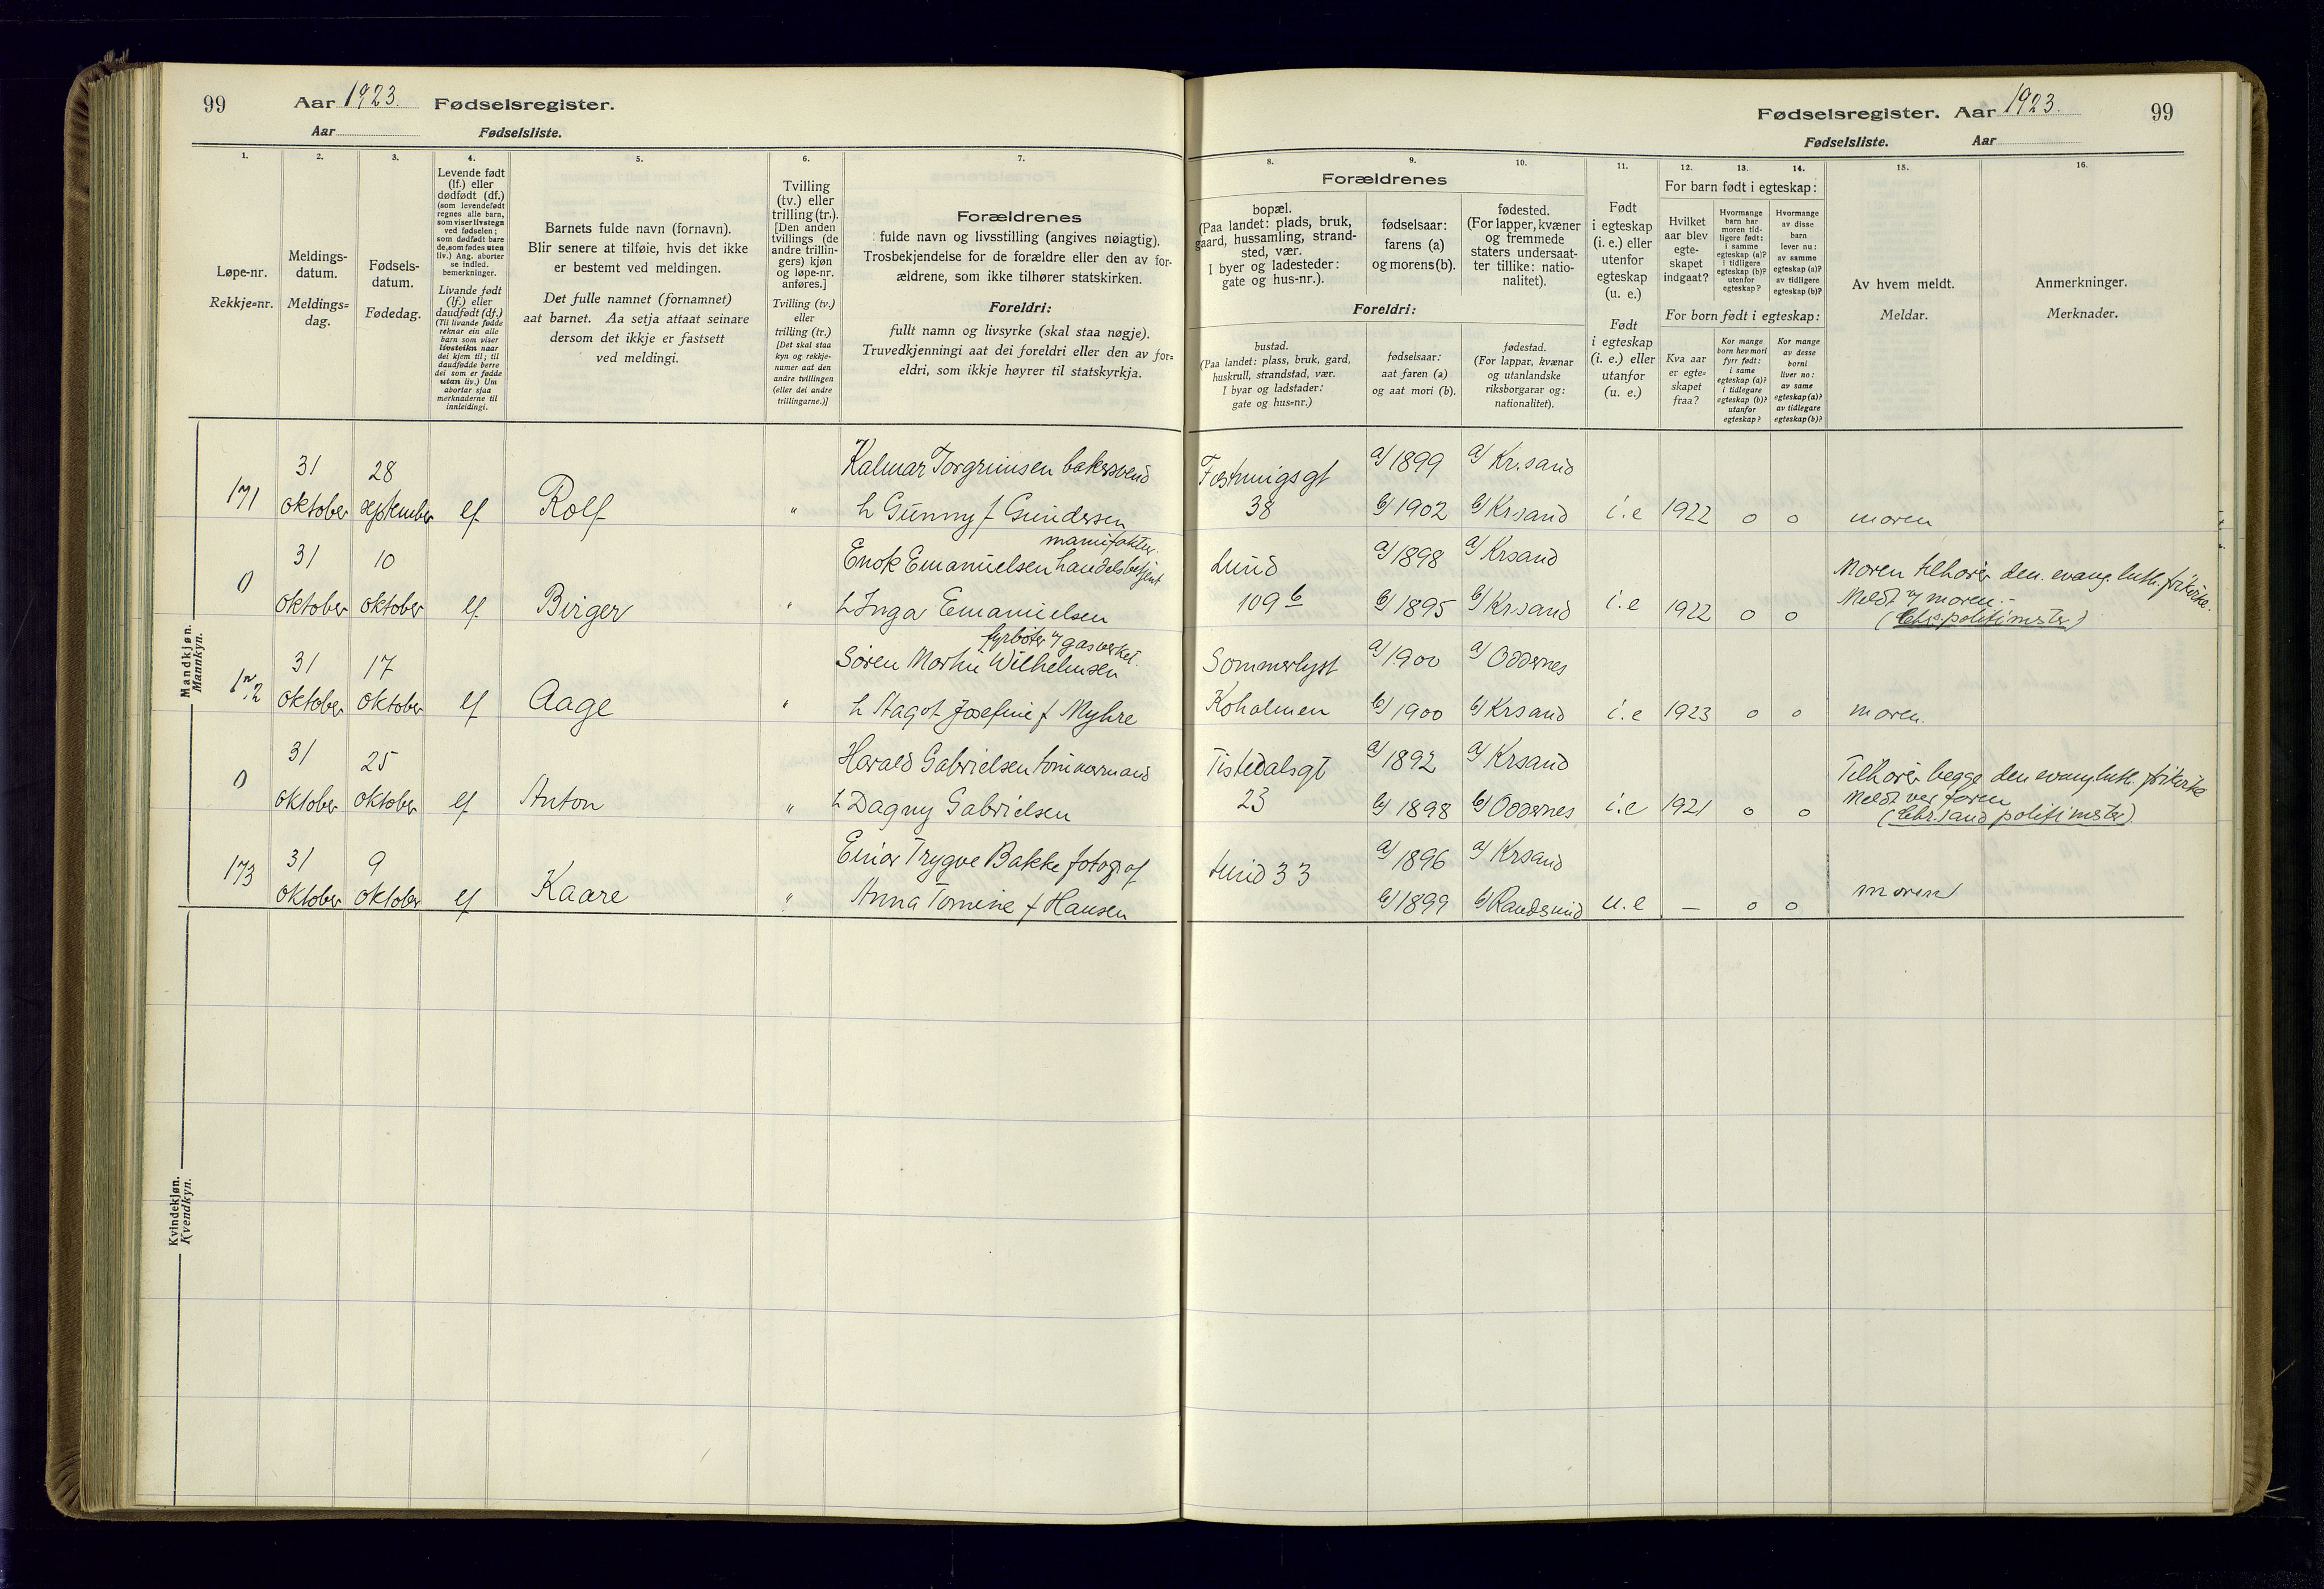 99 Aar 1923. Fødselsregister.
Aar Fødselsliste.
1. 2. 3. 4. 5. 6. 7.
Løpe-nr.
Rekkje=nr.
Meldings-
datum.
Meldings=
dag.
Fødsels-
datum.
Fødedag.
Levende født
(lf.) eller
dødfødt (df.)
(som levendefødt
regnes alle barn,
som viser livstegn
ved fødselen;
som dødfødt bare
de, som fødes uten
liv.) Ang. aborter
se indled.
bemerkninger.
Livande født
(lf.) eller
daudfødt (df.)
(Til livande fødde
reknar ein alle
barn som viser
livsteikn naar
dei kjem til; til
daudfødde berre
dei som er fødde
utan liv.) Um
abortar sjaa
merknaderne til
innleidingi.
Barnets fulde navn (fornavn).
Blir senere at tilføie, hvis det ikke
er bestemt ved meldingen.
Det fulle namnet (fornamnet)
aat barnet. Aa setja attaat seinare
dersom det ikkje er fastsett
ved meldingi.
Tvilling
(tv.) eller
trilling (tr.).
[Den anden
tvillings (de
andre trillin-
gers) kjøn
og løpe-nr.
anføres.]
Tvilling (tv.)
eller
trilling (tr.)
[Det skal staa
kyn og rekkje-
numer aat den
andre tvillingen
(eller dei andre
trillingarne.)]
Forældrenes
fulde navn og livsstilling (angives nøiagtig).
Trosbekjendelse for de forældre eller den av for-
ældrene, som ikke tilhører statskirken.
Foreldri:
fullt namn og livsyrke (skal staa nøgje).
Truvedkjenningi aat dei foreldri eller den av for=
eldri, som ikkje høyrer til statskyrkja.
Mandkjøn.
Mannkyn.
171 31 oktober 28 september lf Rolf " Kalmar Torgrimsen bakersvend
h Gunny f Gundersen
0 31 oktober 10 oktober lf Birger " Enok Emanuelsen manufaktur. handelsbetjent
h Inga Emanuelsen
172 31 oktober 17 oktober lf Aage " Søren Martin Wilhelmsen fyrbøter v/ gasverket.
h Dagot Josefine f Myhre
0 31 oktober 25 oktober lf Anton " Harald Gabrielsen tømmermand
h Dagny Gabrielsen
173 31 oktober 9 oktober lf Kaare " Einar Trygve Bakke fotograf
Anna Tomine f Hansen
Kvindekjøn.
Kvendkyn.
Fødselsregister. Aar 1923. 99
Fødselsliste. Aar
8. 9. 10. 11. 12. 13. 14. 15. 16.
Forældrenes
bopæl.
(Paa landet: plads, bruk,
gaard, hussamling, strand-
sted, vær.
I byer og ladesteder:
gate og hus-nr.).
fødselsaar:
farens (a)
og morens (b).
fødested.
(For lapper, kvæner
og fremmede
staters undersaat-
ter tillike: natio-
nalitet).
Foreldri:
bustad.
(Paa landet: plass, bruk, gard,
huskrull, strandstad, vær.
I byar og ladstader:
gate og hus=nr.)
fødselsaar:
aat faren (a)
og aat mori (b).
fødestad.
(For lappar, kvænar
og utanlandske
riksborgarar og:
nationalitet).
Født
i egteskap
(i. e.) eller
utenfor
egteskap
(u. e.)
Født
i egteskap
(i. e.) eller
utanfor
(u. e.)
For barn født i egteskap:
Hvilket
aar blev
egte-
skapet
indgaat?
Hvormange
barn har
moren tid-
ligere født:
i samme
egteskap (a)?
i tidligere
egteskap (b)?
utenfor
egteskap?
Hvormange
av disse
barn
lever nu:
av samme
egteskap (a)?
av tidligere
egteskap (b)?
For born født i egteskap:
Kva aar
er egte=
skapet
fraa?
Kor mange
born hev mori
fyrr født:
i same
egteskap (a)?
i tidlegare
egteskap (b)?
utanfor
egteskap?
Kor mange
av desse
borni
liver no:
av same
egteskap (a)?
av tidlegare
egteskap (b)?
Av hvem meldt.
Meldar.
Anmerkninger.
Merknader.
Festningsgt a) 1899 a) Kr.sand
38 b) 1902 b) Krsand i.e 1922 o o moren
Lund a) 1898 a) Krsand Moren tilhører den. evang. luth. frikirke.
109 b b) 1895 b) Krsand i.e 1922 o o Meldt v/ moren.
(Chrs. politimester)
Sommerlyst a) 1900 a) Oddernes
Koholmen b) 1900 b) Krsand i.e 1923 o o moren.
Tistedalsgt a) 1892 a) Krsand Tilhører begge den evang luth. frikirke
23 b) 1898 b) Oddernes i.e 1921 o o Meldt ved faren
(Chr.sand politimester)
Lund 33 a) 1896 a) Krsand
b) 1899 b) Randsund u.e — o o moren